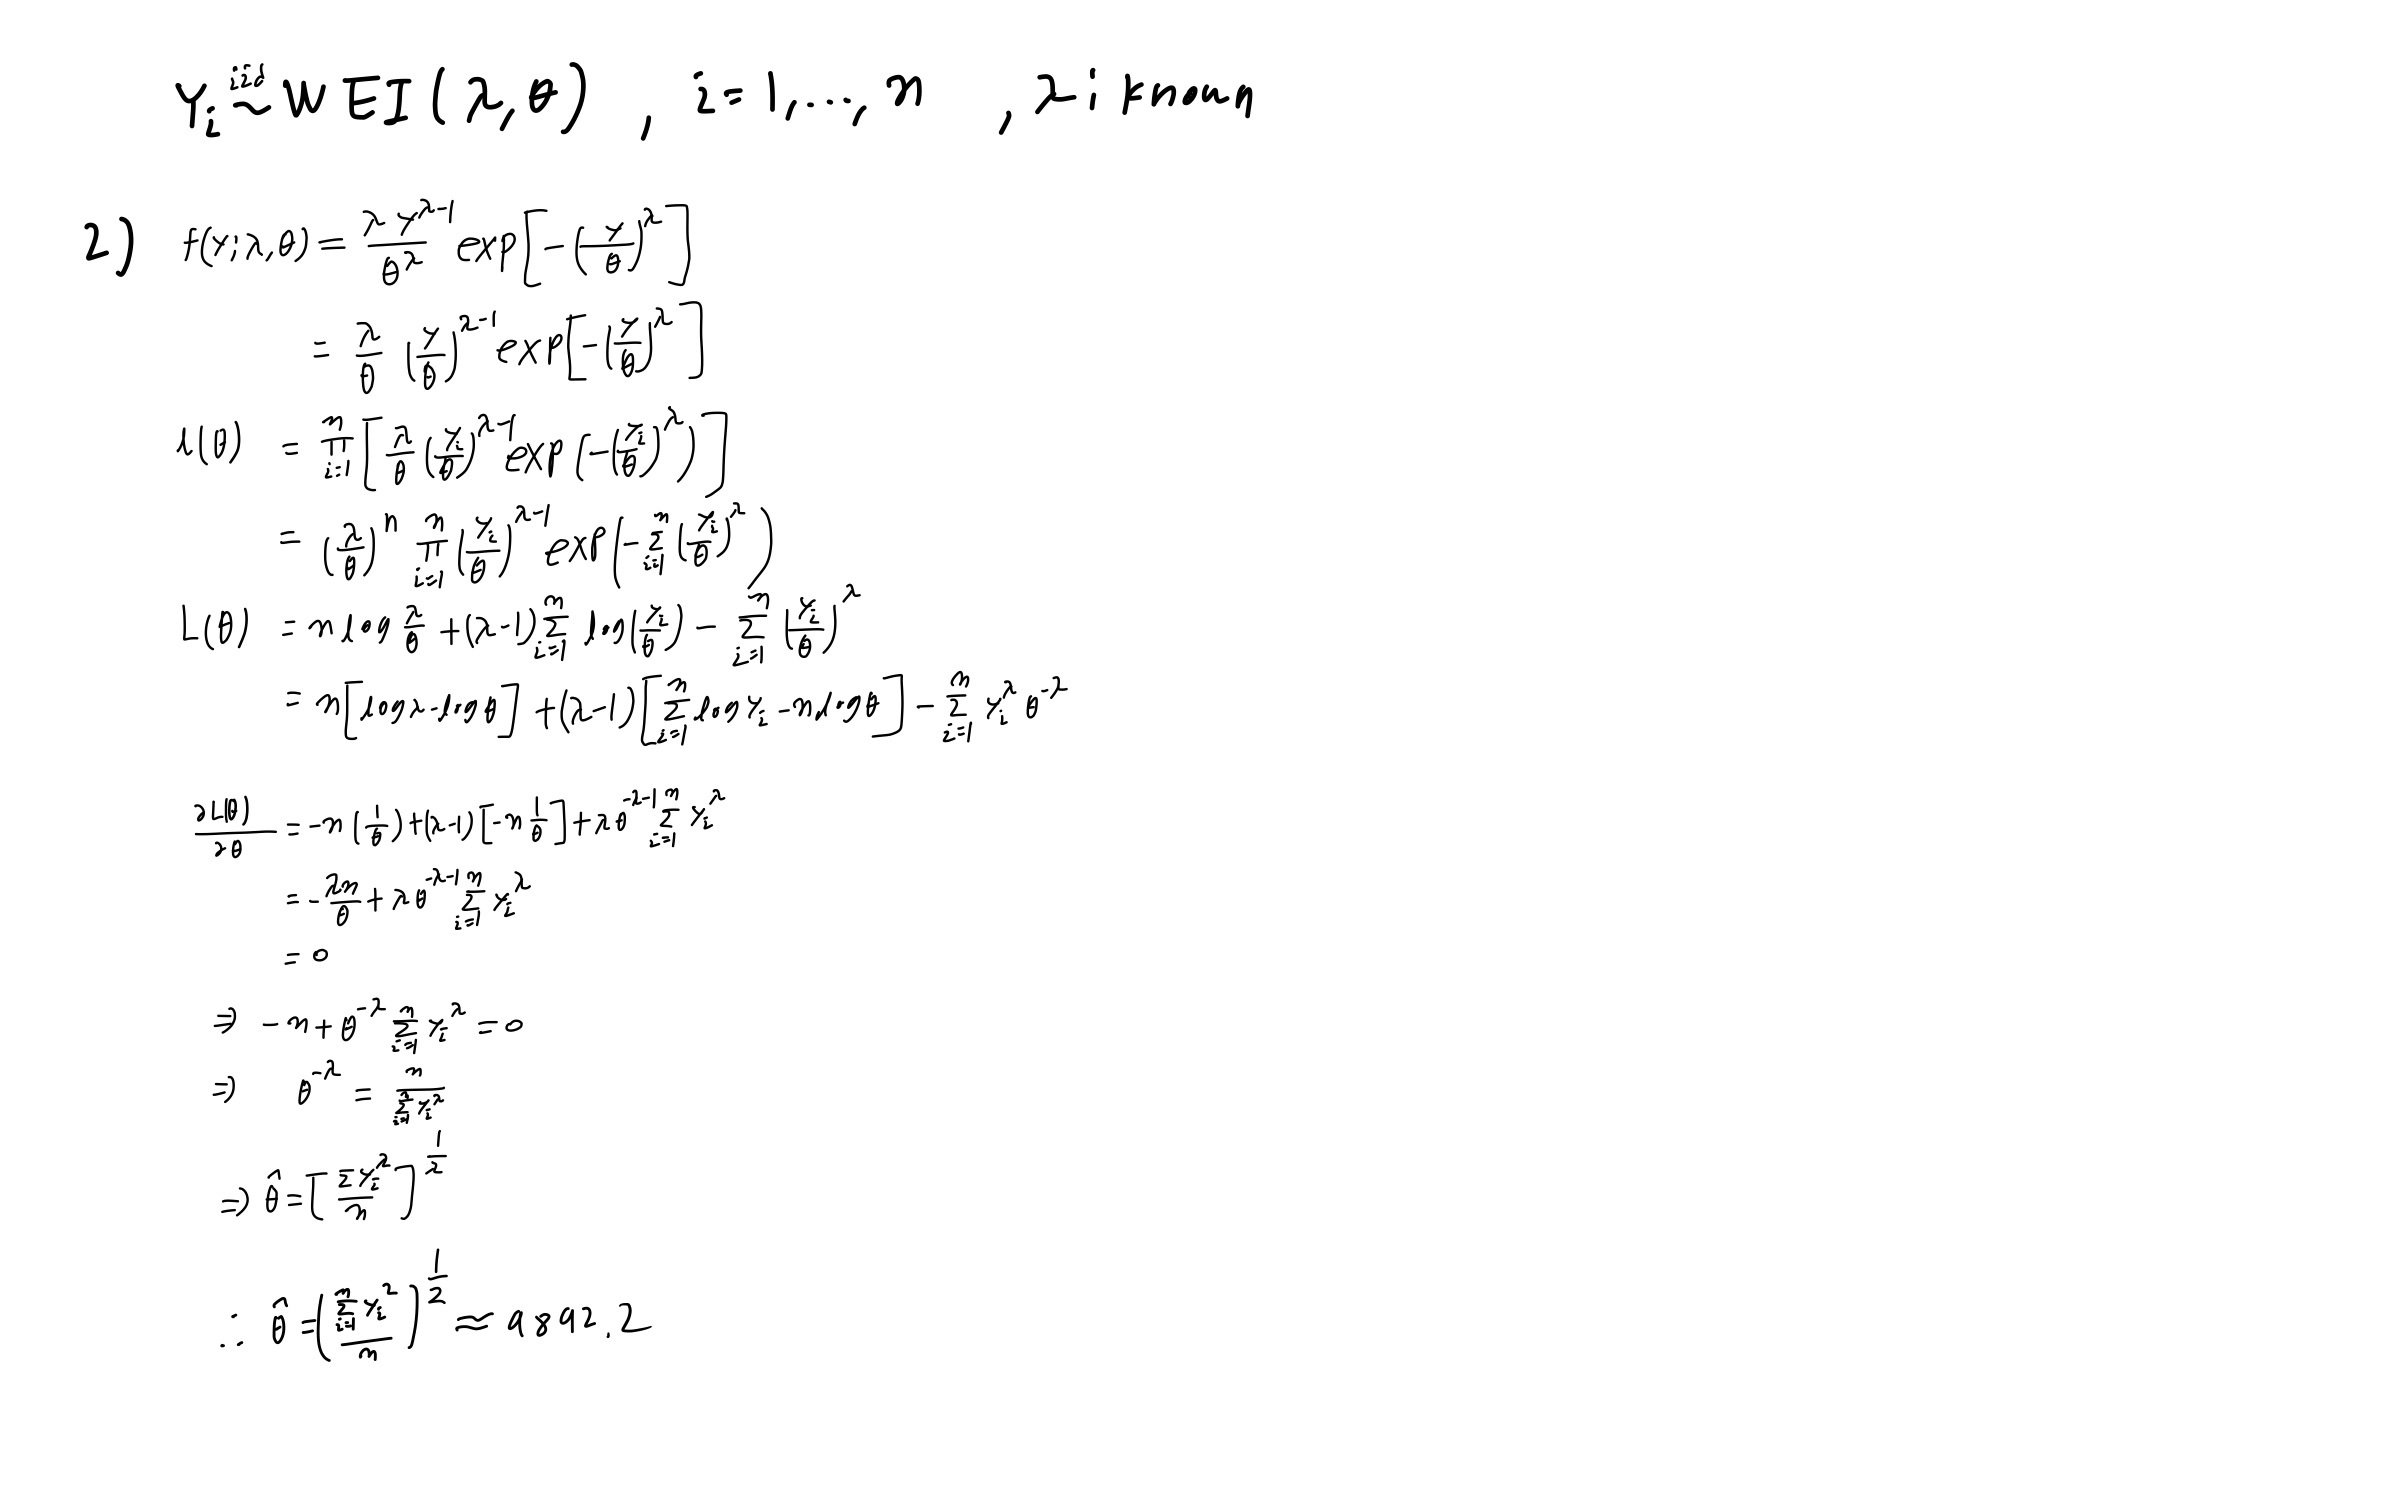 Y_i iid ~ WEI(λ, θ) , i = 1, ..., n , λ : known
2) f(y; λ, θ) = λ y^{λ-1} / θ^λ exp[ -(y/θ)^λ ]
= λ/θ (y/θ)^{λ-1} exp[ -(y/θ)^λ ]
l(θ) = ∏_{i=1}^n [ λ/θ (y_i/θ)^{λ-1} exp( -(y_i/θ)^λ ) ]
= (λ/θ)^n ∏_{i=1}^n (y_i/θ)^{λ-1} exp( -Σ_{i=1}^n (y_i/θ)^λ )
L(θ) = n log λ/θ + (λ-1) Σ_{i=1}^n log(y_i/θ) - Σ_{i=1}^n (y_i/θ)^λ
= n[ log λ - log θ ] + (λ-1)[ Σ_{i=1}^n log y_i - n log θ ] - Σ_{i=1}^n y_i^λ θ^{-λ}
∂L(θ)/∂θ = -n(1/θ) + (λ-1)[ -n 1/θ ] + λ θ^{-λ-1} Σ_{i=1}^n y_i^λ
= - λn/θ + λ θ^{-λ-1} Σ_{i=1}^n y_i^λ
= 0
⇒ -n + θ^{-λ} Σ_{i=1}^n y_i^λ = 0
⇒ θ^{-λ} = n / Σ_{i=1}^n y_i^λ
⇒ θ̂ = [ Σ y_i^λ / n ]^{1/λ}
∴ θ̂ = ( Σ_{i=1}^n y_i^2 / n )^{1/2} ≈ 9892.2